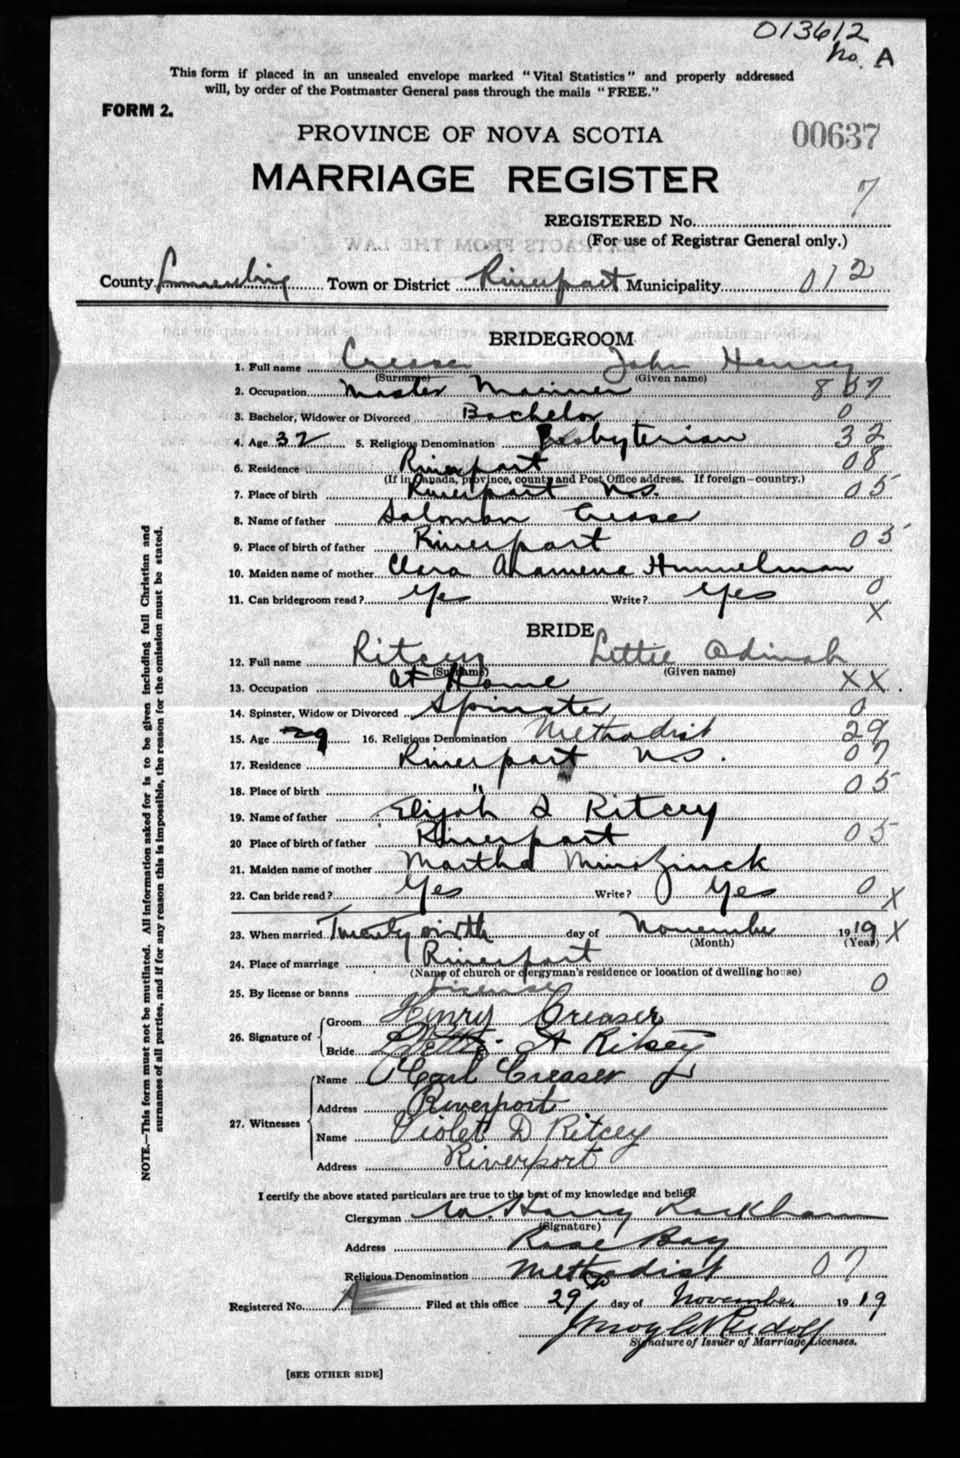 013612
No. A
This form if placed in an unsealed envelope marked "Vital Statistics" and properly addressed
will, by order of the Postmaster General pass through the mails "FREE."
FORM 2.
PROVINCE OF NOVA SCOTIA
00637
MARRIAGE REGISTER
7
REGISTERED No.
(For use of Registrar General only.)
County Lunenburg Town or District Riverport Municipality 012
BRIDEGROOM
1. Full name Creaser John Henry
(Surname) (Given name)
2. Occupation Master Mariner 8 07
3. Bachelor, Widower or Divorced Bachelor 0
4. Age 32 5. Religious Denomination Presbyterian 32
6. Residence Riverport 08
(If in Canada, province, county and Post Office address. If foreign—country.)
7. Place of birth Riverport N.S. 05
8. Name of father Salomon Creaser
9. Place of birth of father Riverport 05
10. Maiden name of mother Clara Himmelman
11. Can bridegroom read? Yes Write? Yes 0
X
BRIDE
12. Full name Ritcey Lettie Adinah
(Surname) (Given name)
13. Occupation At Home XX.
14. Spinster, Widow or Divorced Spinster 0
15. Age 29 16. Religious Denomination Methodist 29
17. Residence Riverport N.S. 07
18. Place of birth " 05
19. Name of father Elijah Ritcey
20 Place of birth of father Riverport 05
21. Maiden name of mother Martha Zinck
22. Can bride read? Yes Write? Yes 0 X
23. When married Twenty sixth day of November 1919 X
(Month) (Year)
24. Place of marriage Riverport
(Name of church or clergyman's residence or location of dwelling house)
25. By license or banns License 0
26. Signature of Groom Henry Creaser
Bride Lettie A Ritcey
27. Witnesses Name Carl Creaser
Address Riverport
Name Violet D Ritcey
Address Riverport
I certify the above stated particulars are true to the best of my knowledge and belief.
Clergyman W. Harry Rackham
(Signature)
Address Rose Bay
Religious Denomination Methodist 07
Registered No. A Filed at this office 29 day of November 1919
Rudolf
Signature of Issuer of Marriage Licenses.
[SEE OTHER SIDE]
NOTE.—This form must not be mutilated. All information asked for is to be given including full Christian and
surnames of all parties, and if for any reason this is impossible, the reason for the omission must be stated.